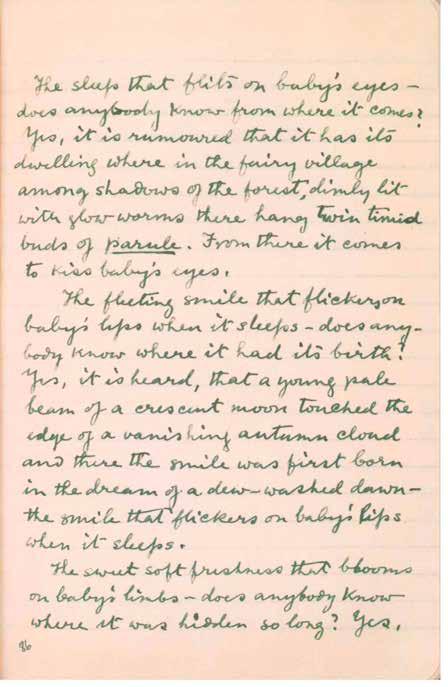 The sleep that flits on baby's eyes –
does anybody know from where it comes?
Yes, it is rumoured that it has its
dwelling where in the fairy village
among shadows of the forest, dimly lit
with glow-worms there hang twin timid
buds of parule. From there it comes
to kiss baby's eyes.
The fleeting smile that flickers on
baby's lips when it sleeps – does any-
body know where it had its birth?
Yes, it is heard, that a young pale
beam of a crescent moon touched the
edge of a vanishing autumn cloud
and there the smile was first born
in the dream of a dew-washed dawn –
the smile that flickers on baby's lips
when it sleeps.
The sweet soft freshness that blooms
on baby's limbs – does anybody know
where it was hidden so long? Yes,
86